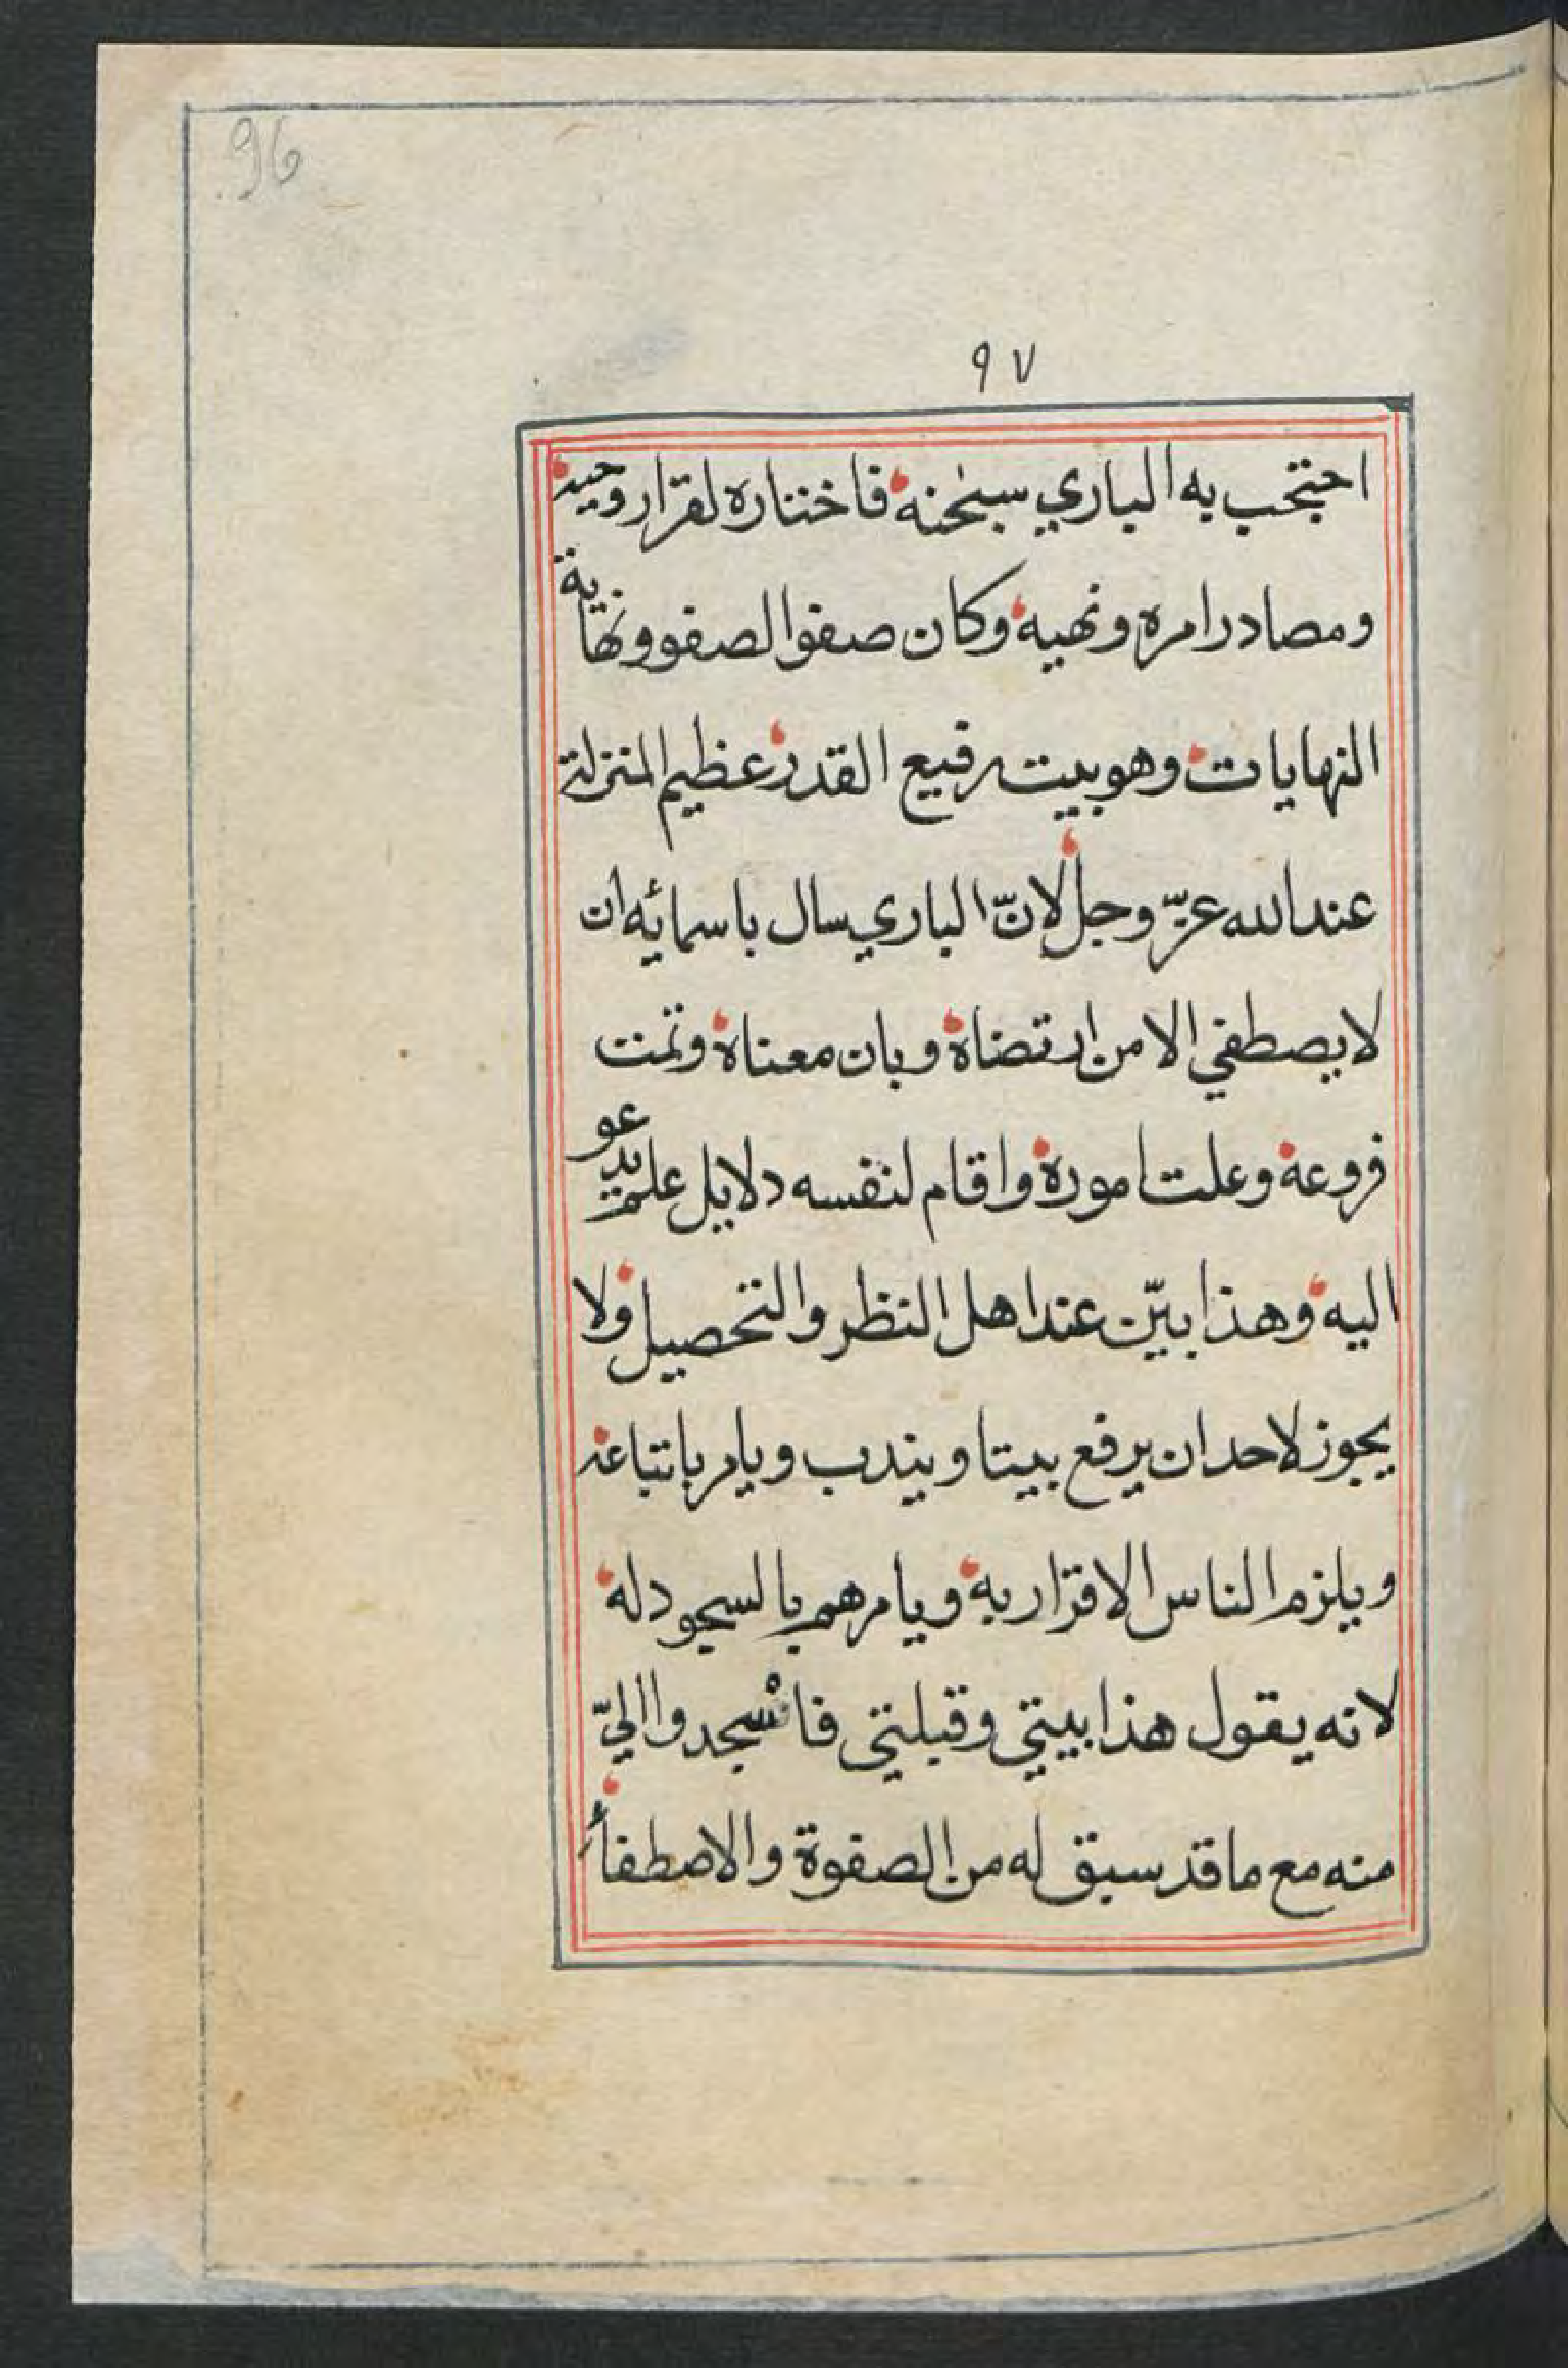 96
٩٧
احتجب به الباري سبحٰنه فاختاره لقرار وحيه
ومصادر امره ونهيه وكان صفو الصفو ونهاية
النهايات وهو بيت رفيع القدر عظيم المنزلة
عند الله عزّ وجل لانّ الباري سال باسمائه ان
لا يصطفي الا من ارتضاه وبان معناه وتمت
فروعه وعلت اموره واقام لنفسه دلايل علم يدعو
اليه وهذا بيّن عند اهل النظر والتحصيل ولا
يجوز لاحد ان يرفع بيتا ويندب ويامر باتباعه
ويلزم الناس الاقرار به ويامرهم بالسجود له
لانه يقول هذا بيتي وقبلتي فاسْجدوا اليّ
منه مع ما قد سبق له من الصفوة والاصطفأ